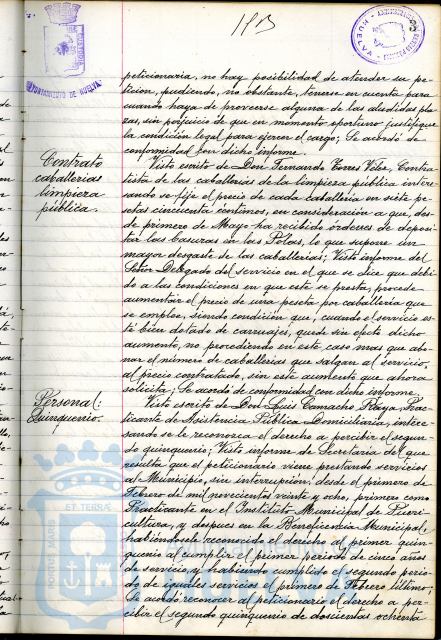 peticionaria, no hay posibilidad de atender su pe-
tición, pudiendo, no obstante, tenerse en cuenta para
cuando haya de proveerse alguna de las aludidas pla-
zas, sin perjuicio de que en momento oportuno justifique
la condición legal para ejercer el cargo; Se acordó de
conformidad con dicho informe.
Contrato
caballerias
limpieza
pública.
Visto escrito de Don Fernando Torres Velez, Contra-
tista de las caballerias de la limpieza pública intere-
sando se fije el precio de cada caballeria en siete pe-
setas cincuenta centimos, en consideración a que, des-
de primero de Mayo ha recibido ordenes de deposi-
tar las basuras en las Polas, lo que supone un
mayor desgaste de las caballerias; Visto informe del
Señor Delegado del servicio en el que se dice que debi-
do a las condiciones en que este se presta, procede
aumentar el precio de una peseta por caballeria que
se emplee, siendo condición que, cuando el servicio es-
té bien dotado de carruajes, quede sin efecto dicho
aumento, no procediendo en este caso mas que abo-
nar el número de caballerias que salgan al servicio,
al precio contratado, sin este aumento que ahora
solicita; Se acordó de conformidad con dicho informe.
Personal:
Quinquenio.
Visto escrito de Don Luis Camacho Playa, Prac-
ticante de Asistencia Pública Domiciliaria, intere-
sando se le reconozca el derecho a percibir el segun-
do quinquenio; Visto informe de Secretaria del que
resulta que el peticionario viene prestando servicios
al Municipio, sin interrupción, desde el primero de
Febrero de mil novecientos veinte y ocho, primero como
Practicante en el Instituto Municipal de Pueri-
cultura, y despues en la Beneficencia Municipal,
habiendosele reconocido el derecho al primer quin-
quenio al cumplir el primer periodo de cinco años
de servicio, y habiendo cumplido el segundo perio-
do de iguales servicios el primero de Febrero último;
Se acordó reconocer al peticionario el derecho a per-
cibir el segundo quinquenio de doscientas ochenta
AYUNTAMIENTO DE HUELVA
HUELVA
PORTUS MARIS ET TERRAE